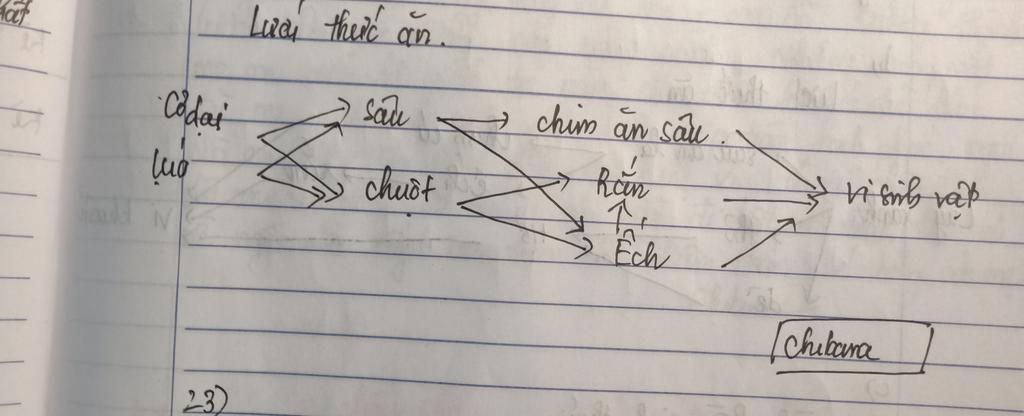 Lưới thức ăn.
Cỏ dại
lúa
sâu
chuột
chim ăn sâu.
Rắn
Ếch
vi sinh vật
Chibara
23)